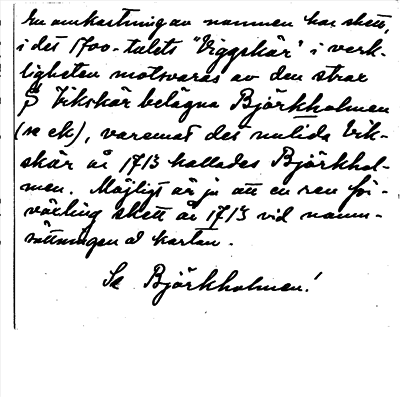 En omkastning av namnen har skett,
i det 1700-talets "Viggskär" i verk-
ligheten motsvaras av den strax
S Vikskär belägna Björkholmen
(se ek), varemot det nutida Vik-
skär år 1713 kallades Björkhol-
men. Möjligt är ju att en ren för-
växling skett år 1713 vid namn-
sättningen å kartan.
Se Björkholmen!